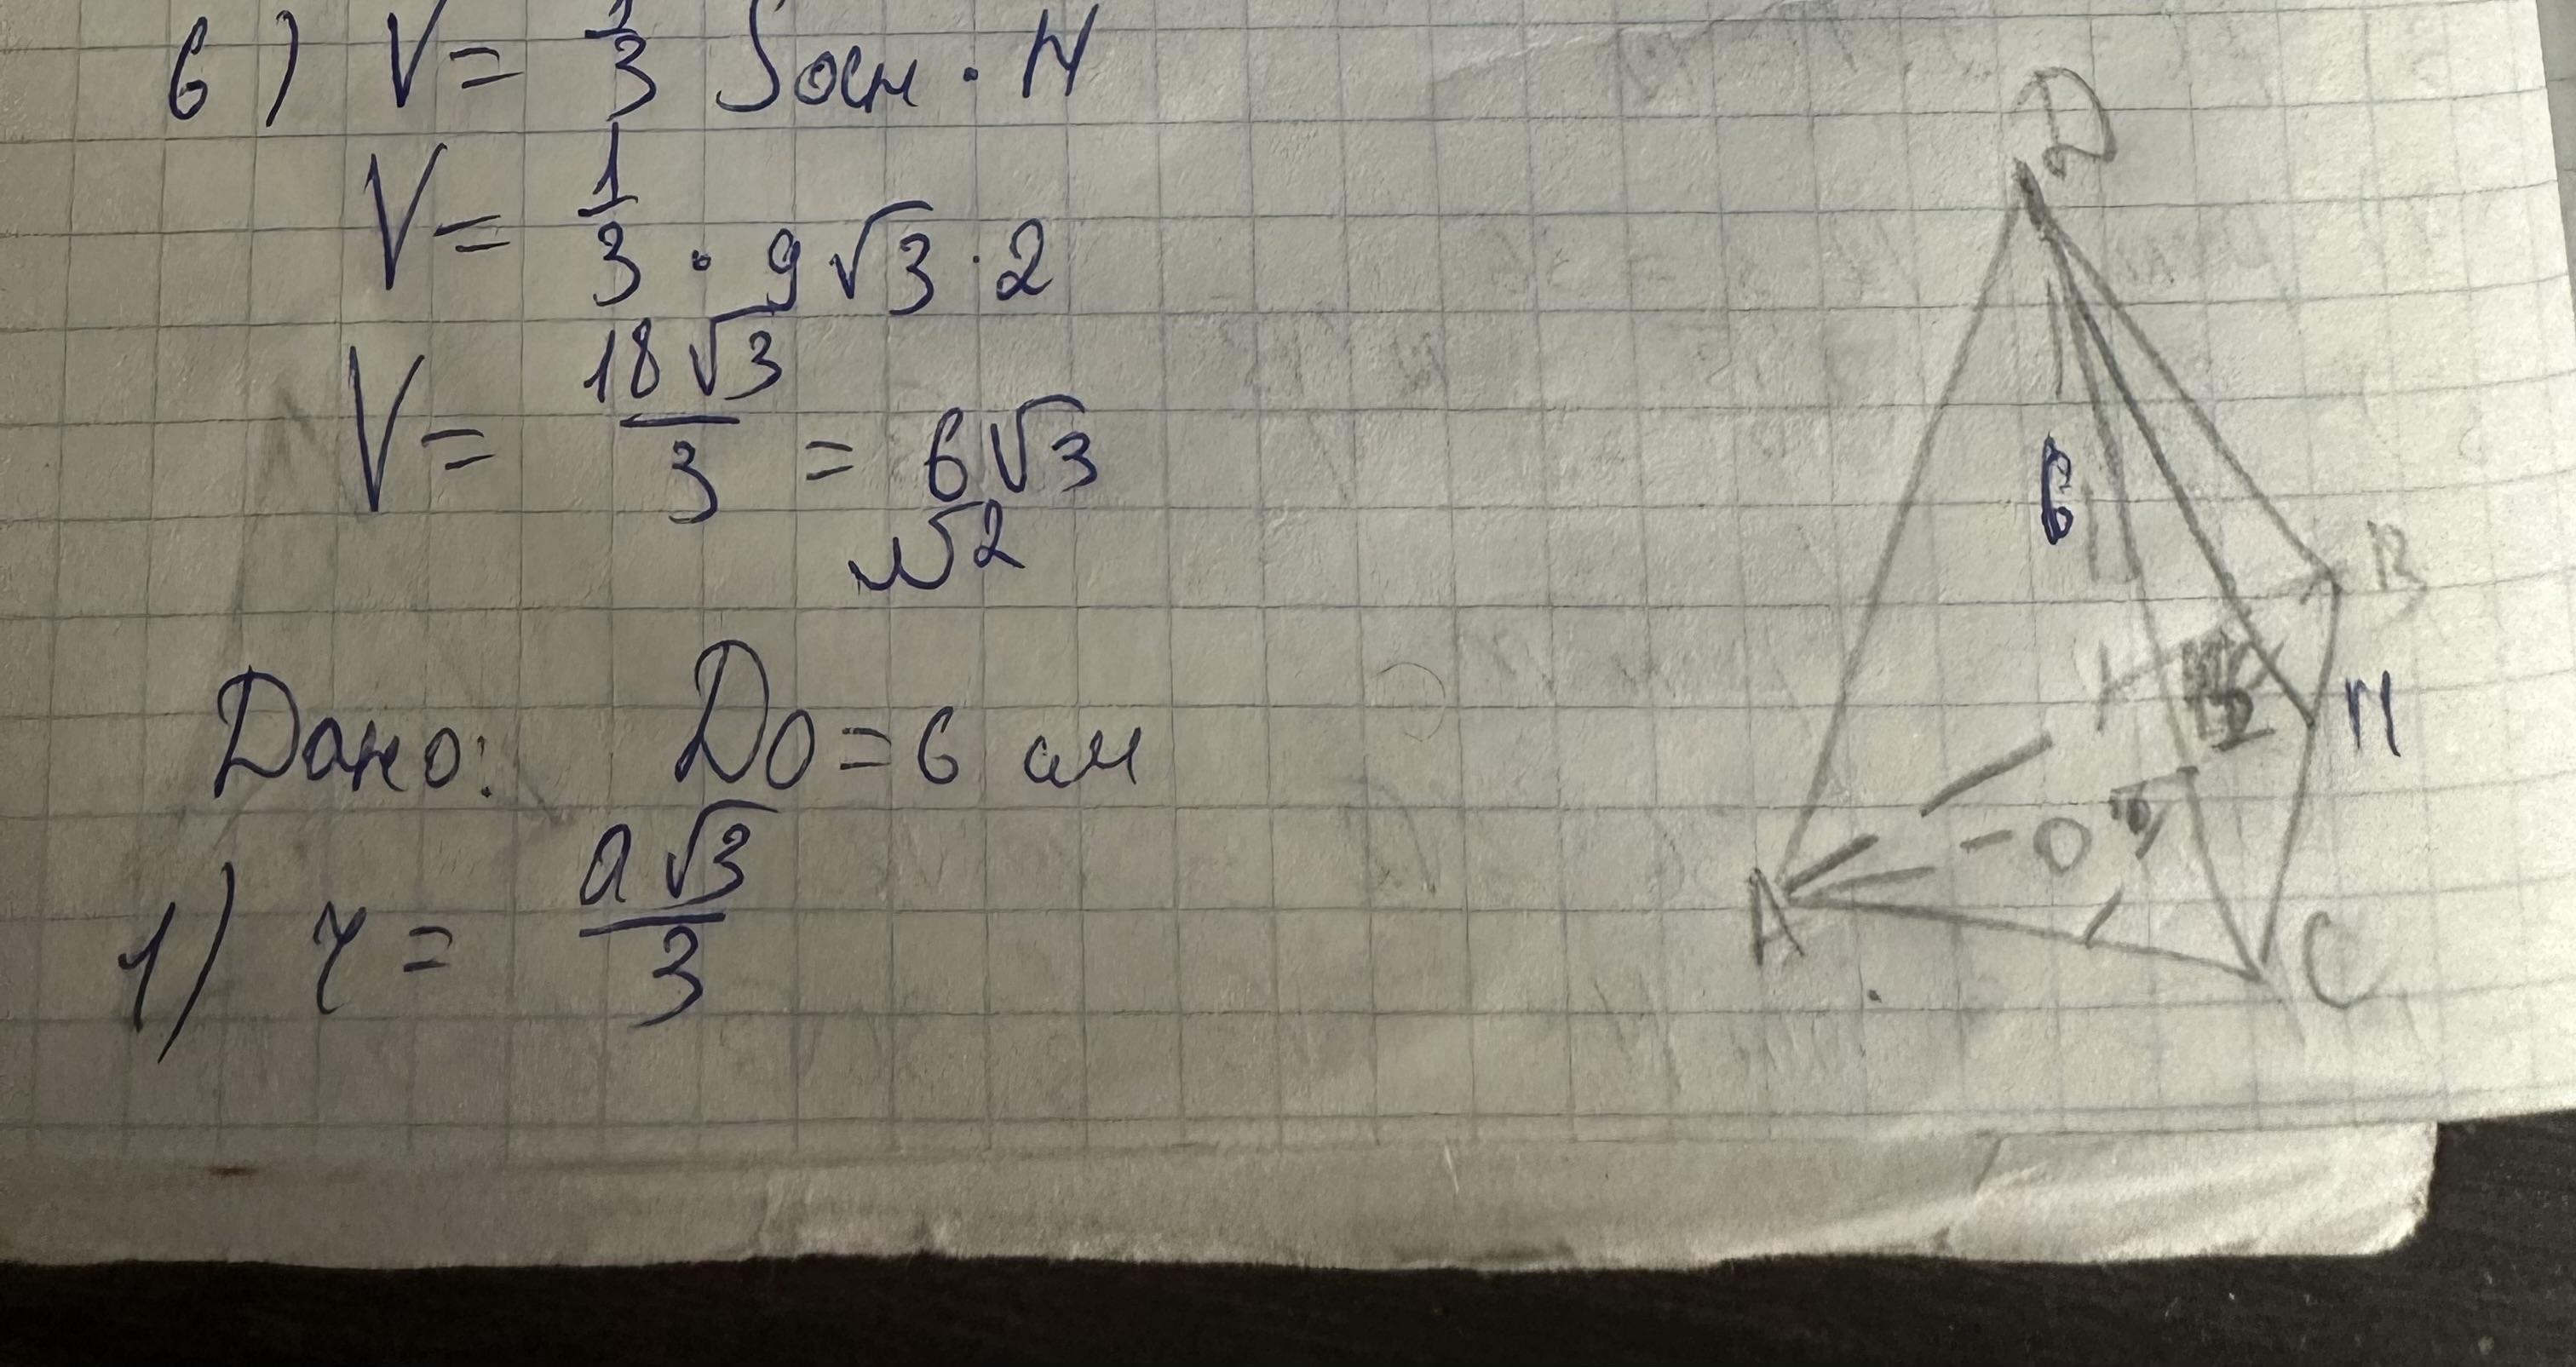 6) V = 1/3 Sосн · H
V = 1/3 · 9√3 · 2
V = 18√3/3 = 6√3
№2
Дано: DO = 6 см
1) r = a√3/3
D
6
B
M
12
O
A
C